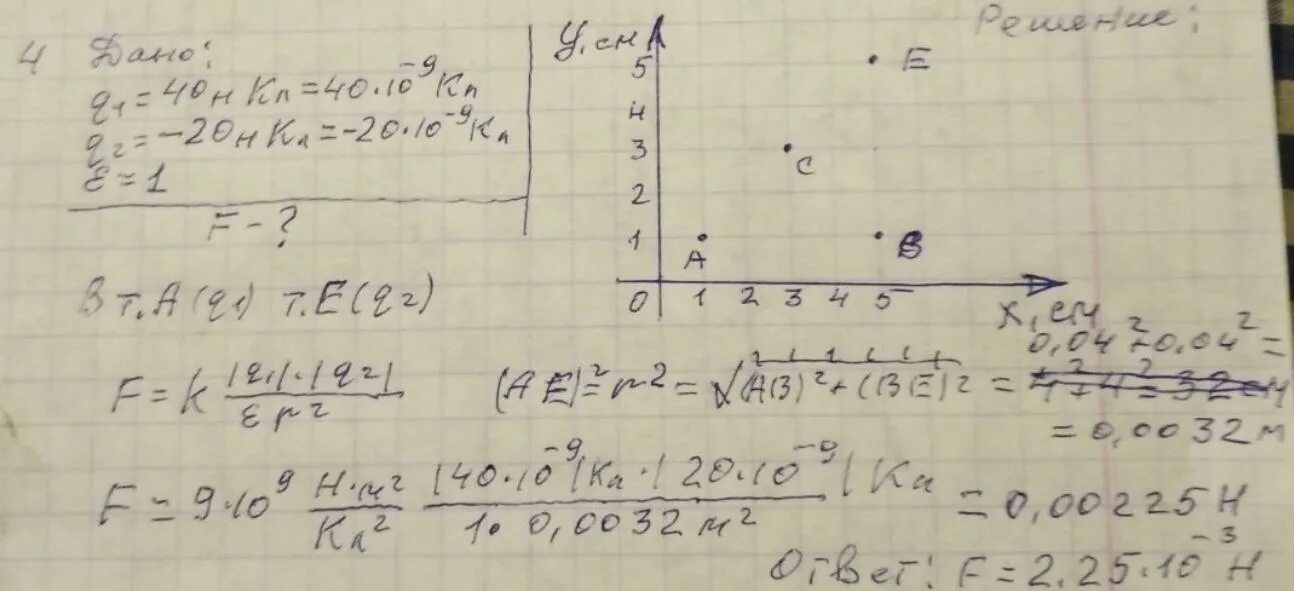 4 Дано:
q₁ = 40 н Кл = 40·10⁻⁹ Кл
q₂ = -20 н Кл = -20·10⁻⁹ Кл
ε = 1
F - ?
Решение:
y, см
5
4
3
2
1
0 1 2 3 4 5
x, см
E
C
A
B
В т. A (q₁) т. E (q₂)
F = k |q₁|·|q₂| / ε r²
(AE)² = r² = √(AB)² + (BE)² = 0,04² + 0,04² =
= 0,0032 м
F = 9·10⁹ Н·м²/Кл² |40·10⁻⁹| Кл · |20·10⁻⁹| Кл / 1·0,0032 м² = 0,00225 Н
Ответ: F = 2,25·10⁻³ Н